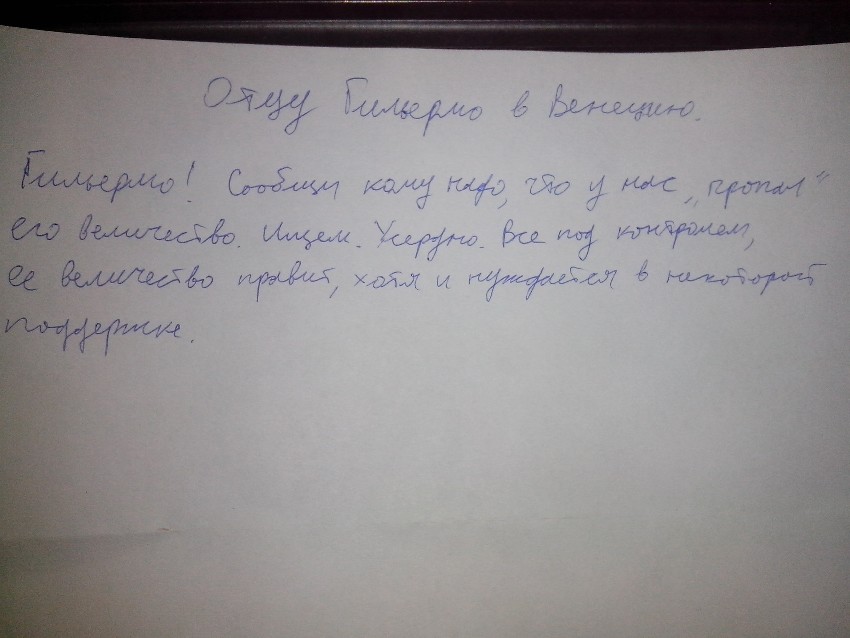 Отцу Гильермо в Венецию.
Гильермо! Сообщи кому надо, что у нас „пропал"
его величество. Ищем. Усердно. Все под контролем,
ее величество правит, хотя и нуждается в некоторой
поддержке.